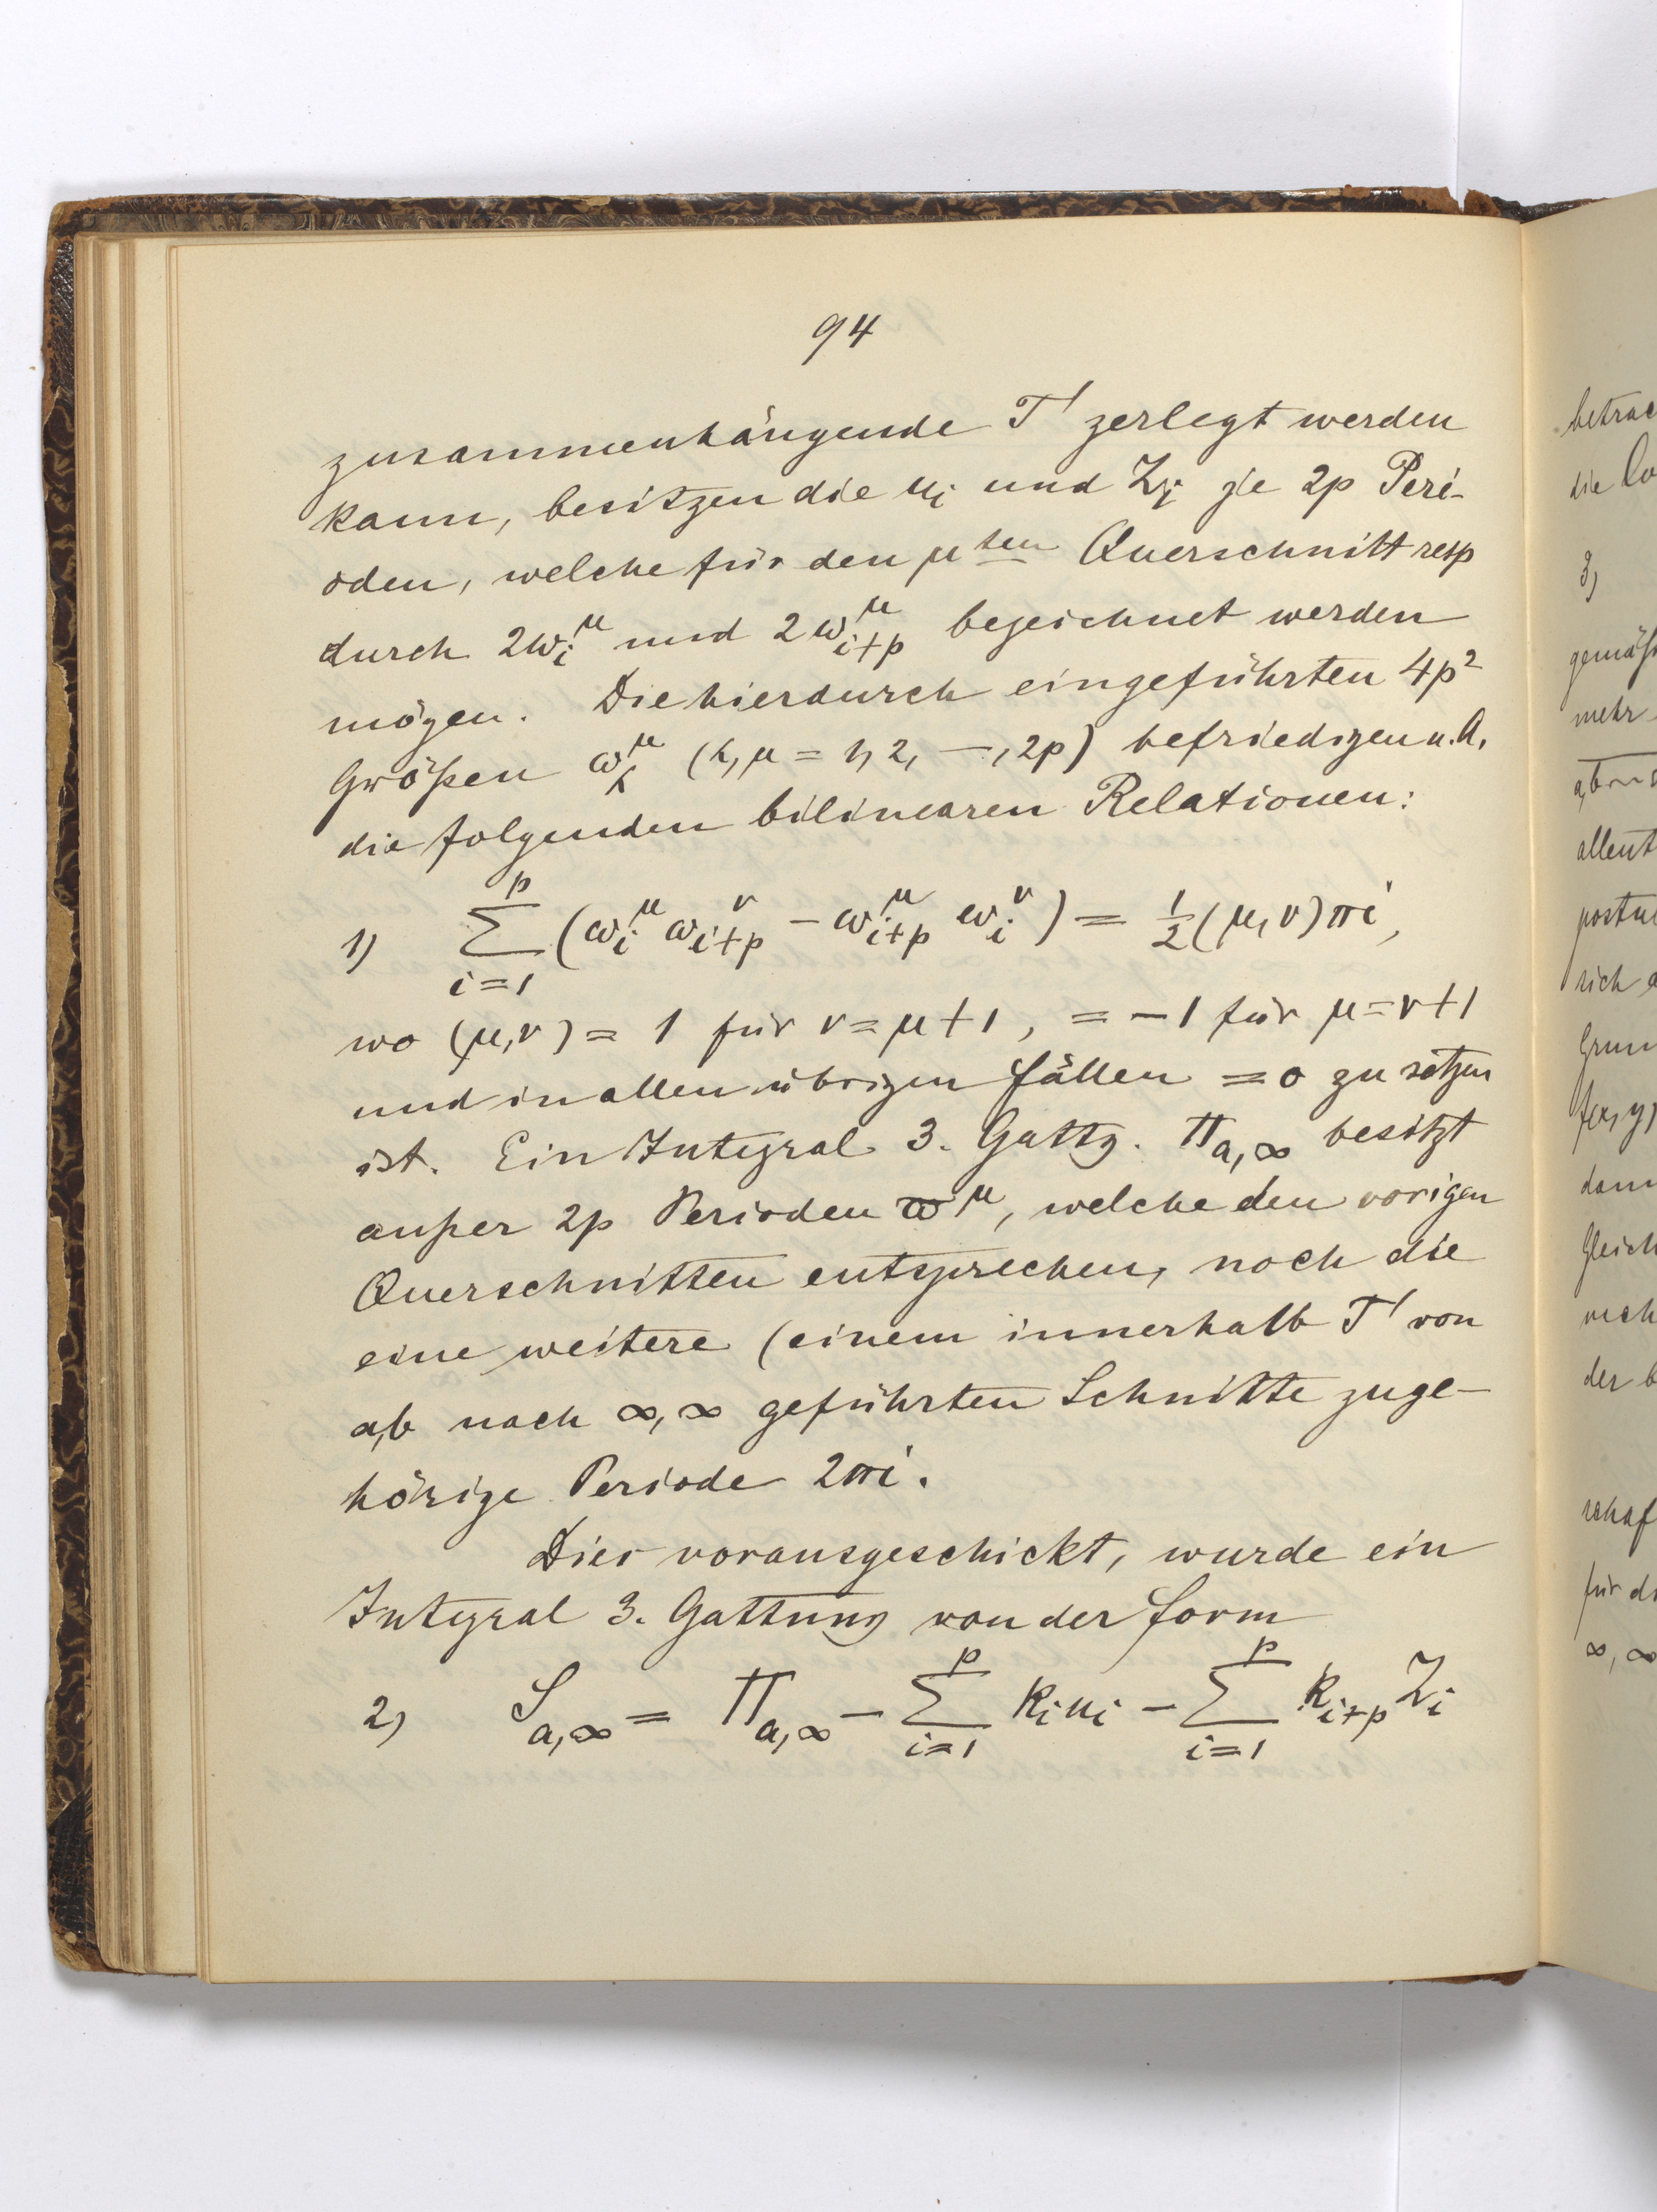 94
zusammenhängende T' zerlegt werden
kann, besitzen die u_i und Z_i je 2p Peri-
oden, welche für den μten Querschnitt resp
durch 2ω_i^μ und 2ω_{i+p}^μ bezeichnet werden
mögen. Die hierdurch eingeführten 4p²
Größen ω_k^μ (k, μ = 1, 2, —, 2p) befriedigen u. A.
die folgenden bilinearen Relationen:
1) ∑_{i=1}^{p} (ω_i^μ ω_{i+p}^ν − ω_{i+p}^μ ω_i^ν) = ½(μ,ν)πi,
wo (μ,ν) = 1 für ν = μ+1, = −1 für μ = ν+1
und in allen übrigen Fällen = 0 zu setzen
ist. Ein Integral 3. Gattg. Π_{a,∞} besitzt
außer 2p Perioden ϖ^μ, welche den vorigen
Querschnitten entsprechen, noch die
eine weitere (einem innerhalb T' von
a,b nach ∞,∞ geführten Schnitte zuge-
hörige Periode 2πi.
Dies vorausgeschickt, wurde ein
Integral 3. Gattung von der Form
2) S_{a,∞} = Π_{a,∞} − ∑_{i=1}^{p} k_i u_i − ∑_{i=1}^{p} k_{i+p} Z_i
betrac
die
3)
gemäß
mehr
allent
sich
Grun
f(x,y)
dann
gleich
der b
schaf
für di
∞, ∞